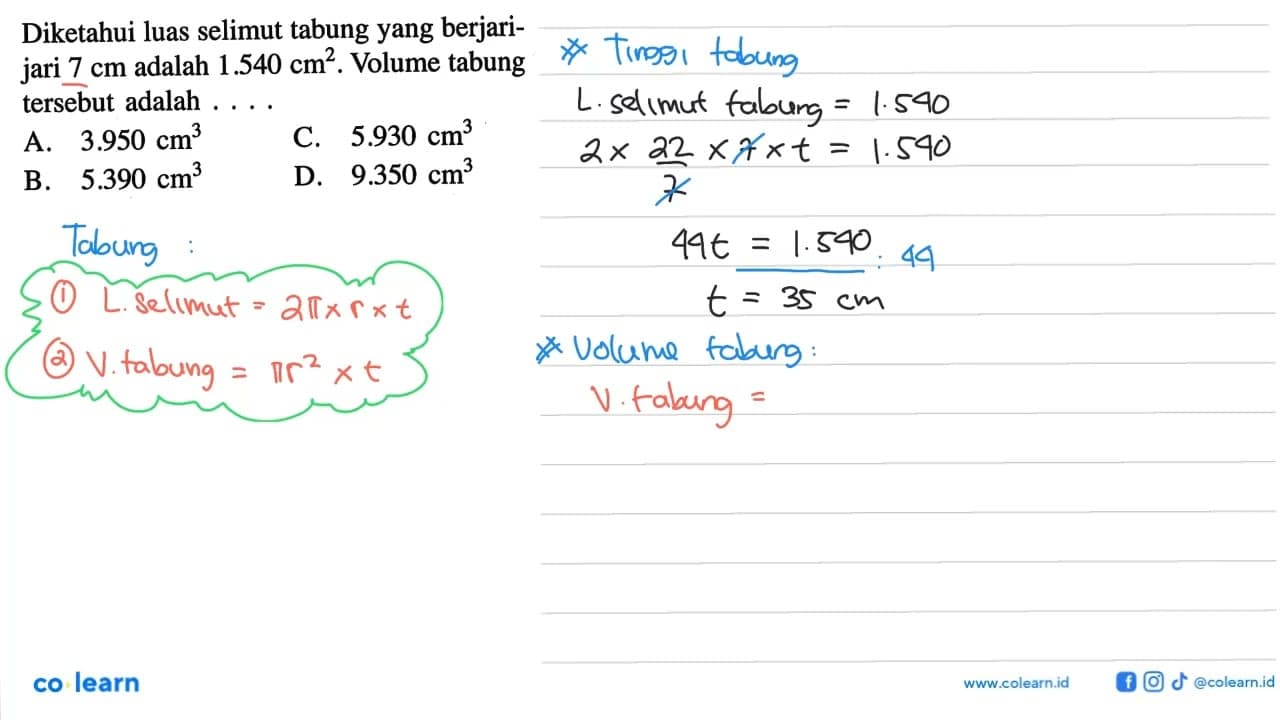 Diketahui luas selimut tabung yang berjari-
jari 7 cm adalah 1.540 cm². Volume tabung
tersebut adalah . . . .
A. 3.950 cm³ C. 5.930 cm³
B. 5.390 cm³ D. 9.350 cm³
Tabung :
① L. Selimut = 2π x r x t
② V. tabung = πr² x t
* Tinggi tabung
L. selimut tabung = 1.540
2 x 22/7 x 7 x t = 1.540
44t = 1.540 : 44
t = 35 cm
* Volume tabung :
V. tabung =
co learn
www.colearn.id @colearn.id